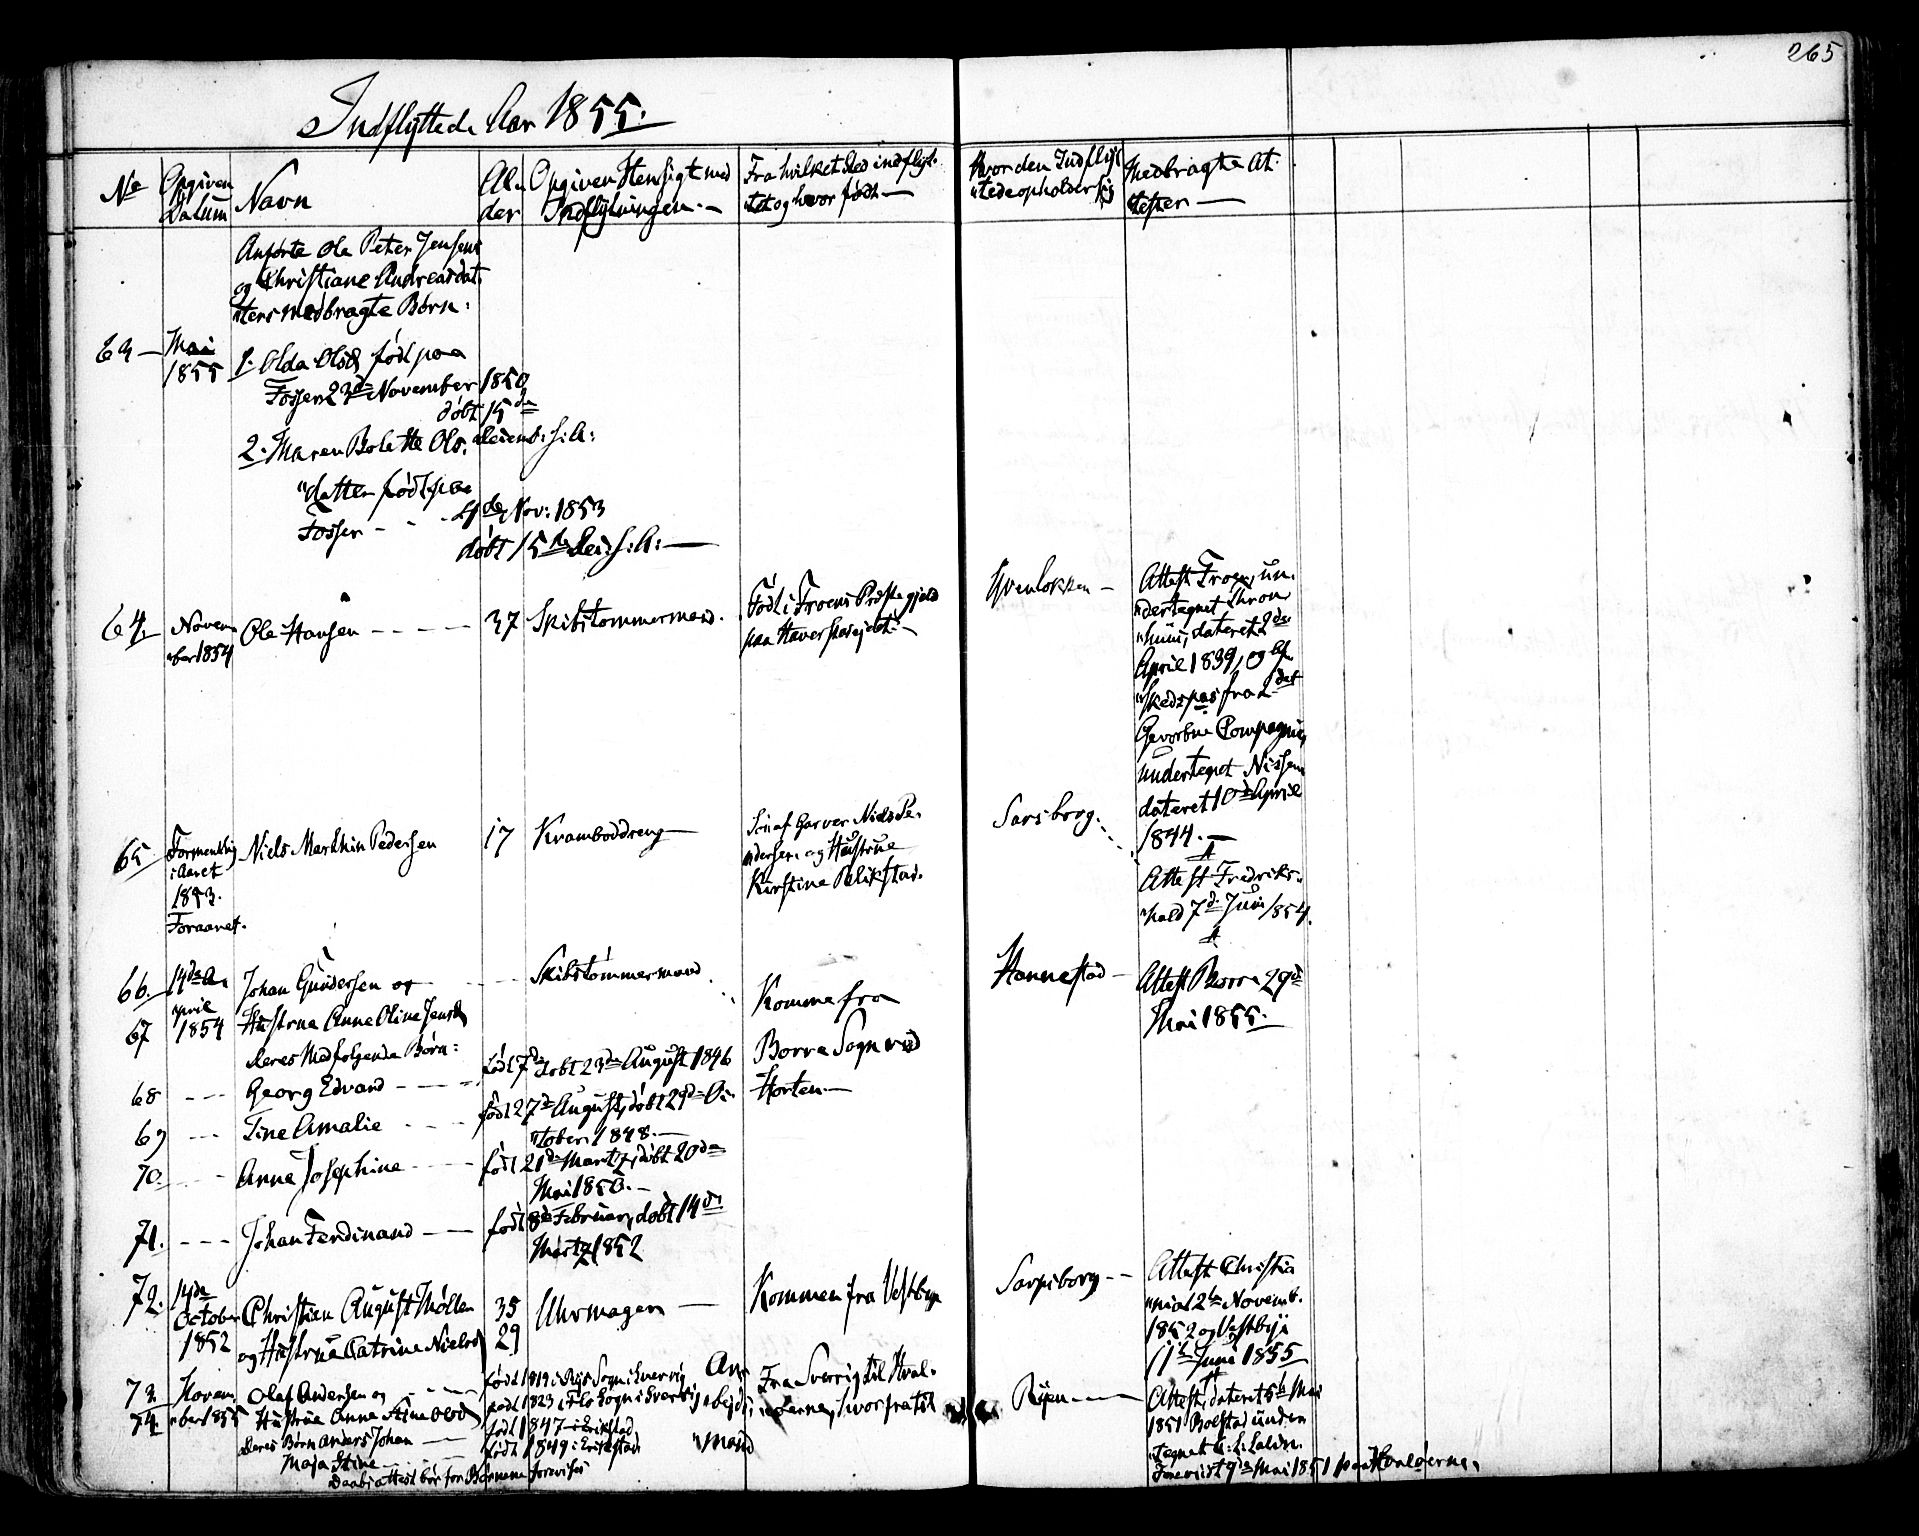 265
Indflyttede Aar 1855.
No Opgiven Datum Navn Alder Opgiven Hensigt med Indflytningen.— Fra hvilket Sted indflyttet og hvor født— Hvor den Indflyttede opholder sig Medbragte Attester—
Anførte Ole Peter Jensens
og Christiane Andreasdat
"ters medbragte Børn:
63— Mai 1. Olda Olsd. født paa
1855
Fosser 23de November 1850
døbt 15de
2. Maren Bolette Ols. Decemb: s: A:
"datter født paa
Fosser - - - 4de Nov: 1853
døbt 15de Dec: s: A:—
64. Novem Ole Hansen - - - - 37 Skibstømmermand. Født i Præstegjeld
"ber 1854 paa
Attest un-
"dertegnet
dateret 2de
April 1839, og Af
"skedspas fra det
Gevorbne Compagnie,
undertegnet Nissen
dateret 10de April
1844.—
65. i Aaret Niels Marthin Pedersen 17 Kramboddreng— Søn af Garver Niels Pe- Sarsborg.
1853. "dersen og Hustrue
Foraaret. Kirstine
Attest Fredriks-
"hald 7de Juni 1854.
66. 14de A- Johan Gundersen og - - Skibstømmermand Komne fra Hannestad— Attest Borre 29de
"pril Mai 1855.
67 1854 Hustrue Anne Oline Jensd.
Deres Medfølgende Børn:
Borre Sogn ved
68 - - - Georg Edvard - - - født 7de døbt 23de August 1846
Horten.—
69 - - - Tine Amalie - - - født 27de August, døbt 29de Oc-
"tober 1848.—
70. - - - Anne Josephine - - - født 21de Martz, døbt 20de
Mai 1850.—
71. - - - Johan Ferdinand — født 8de Februar, døbt 14de
Martz 1852
72. 14de
October Christian August Møller 35 Uhrmager — Kommen fra Vestby Sarpsborg - - Attest Christia
"nia 2de Novemb.
1852 og Hustrue Catrine Nielsd. 29
1852 og Vestby
11te Juni 1855
73 Novem Olaf Andersen og - - - født 1819 i Sogn i Sverrig Ar- Fra Sverrig til Hval- Attest, dateret 5te Mai
74. "ber 1855 Hustrue Anne Stine Olsd. født 1823 i Sogn i Sverrig "beids "øerne, hvorfra til
1851 Bolstad under
Deres Børn Anders Johan — født 1847 i "mand
"tegnet
Maja Stine - - - født 1849 i
Forevist 9de Mai 1851 paa Hvaløerne.
Daabsattest bør for Børnene forevises